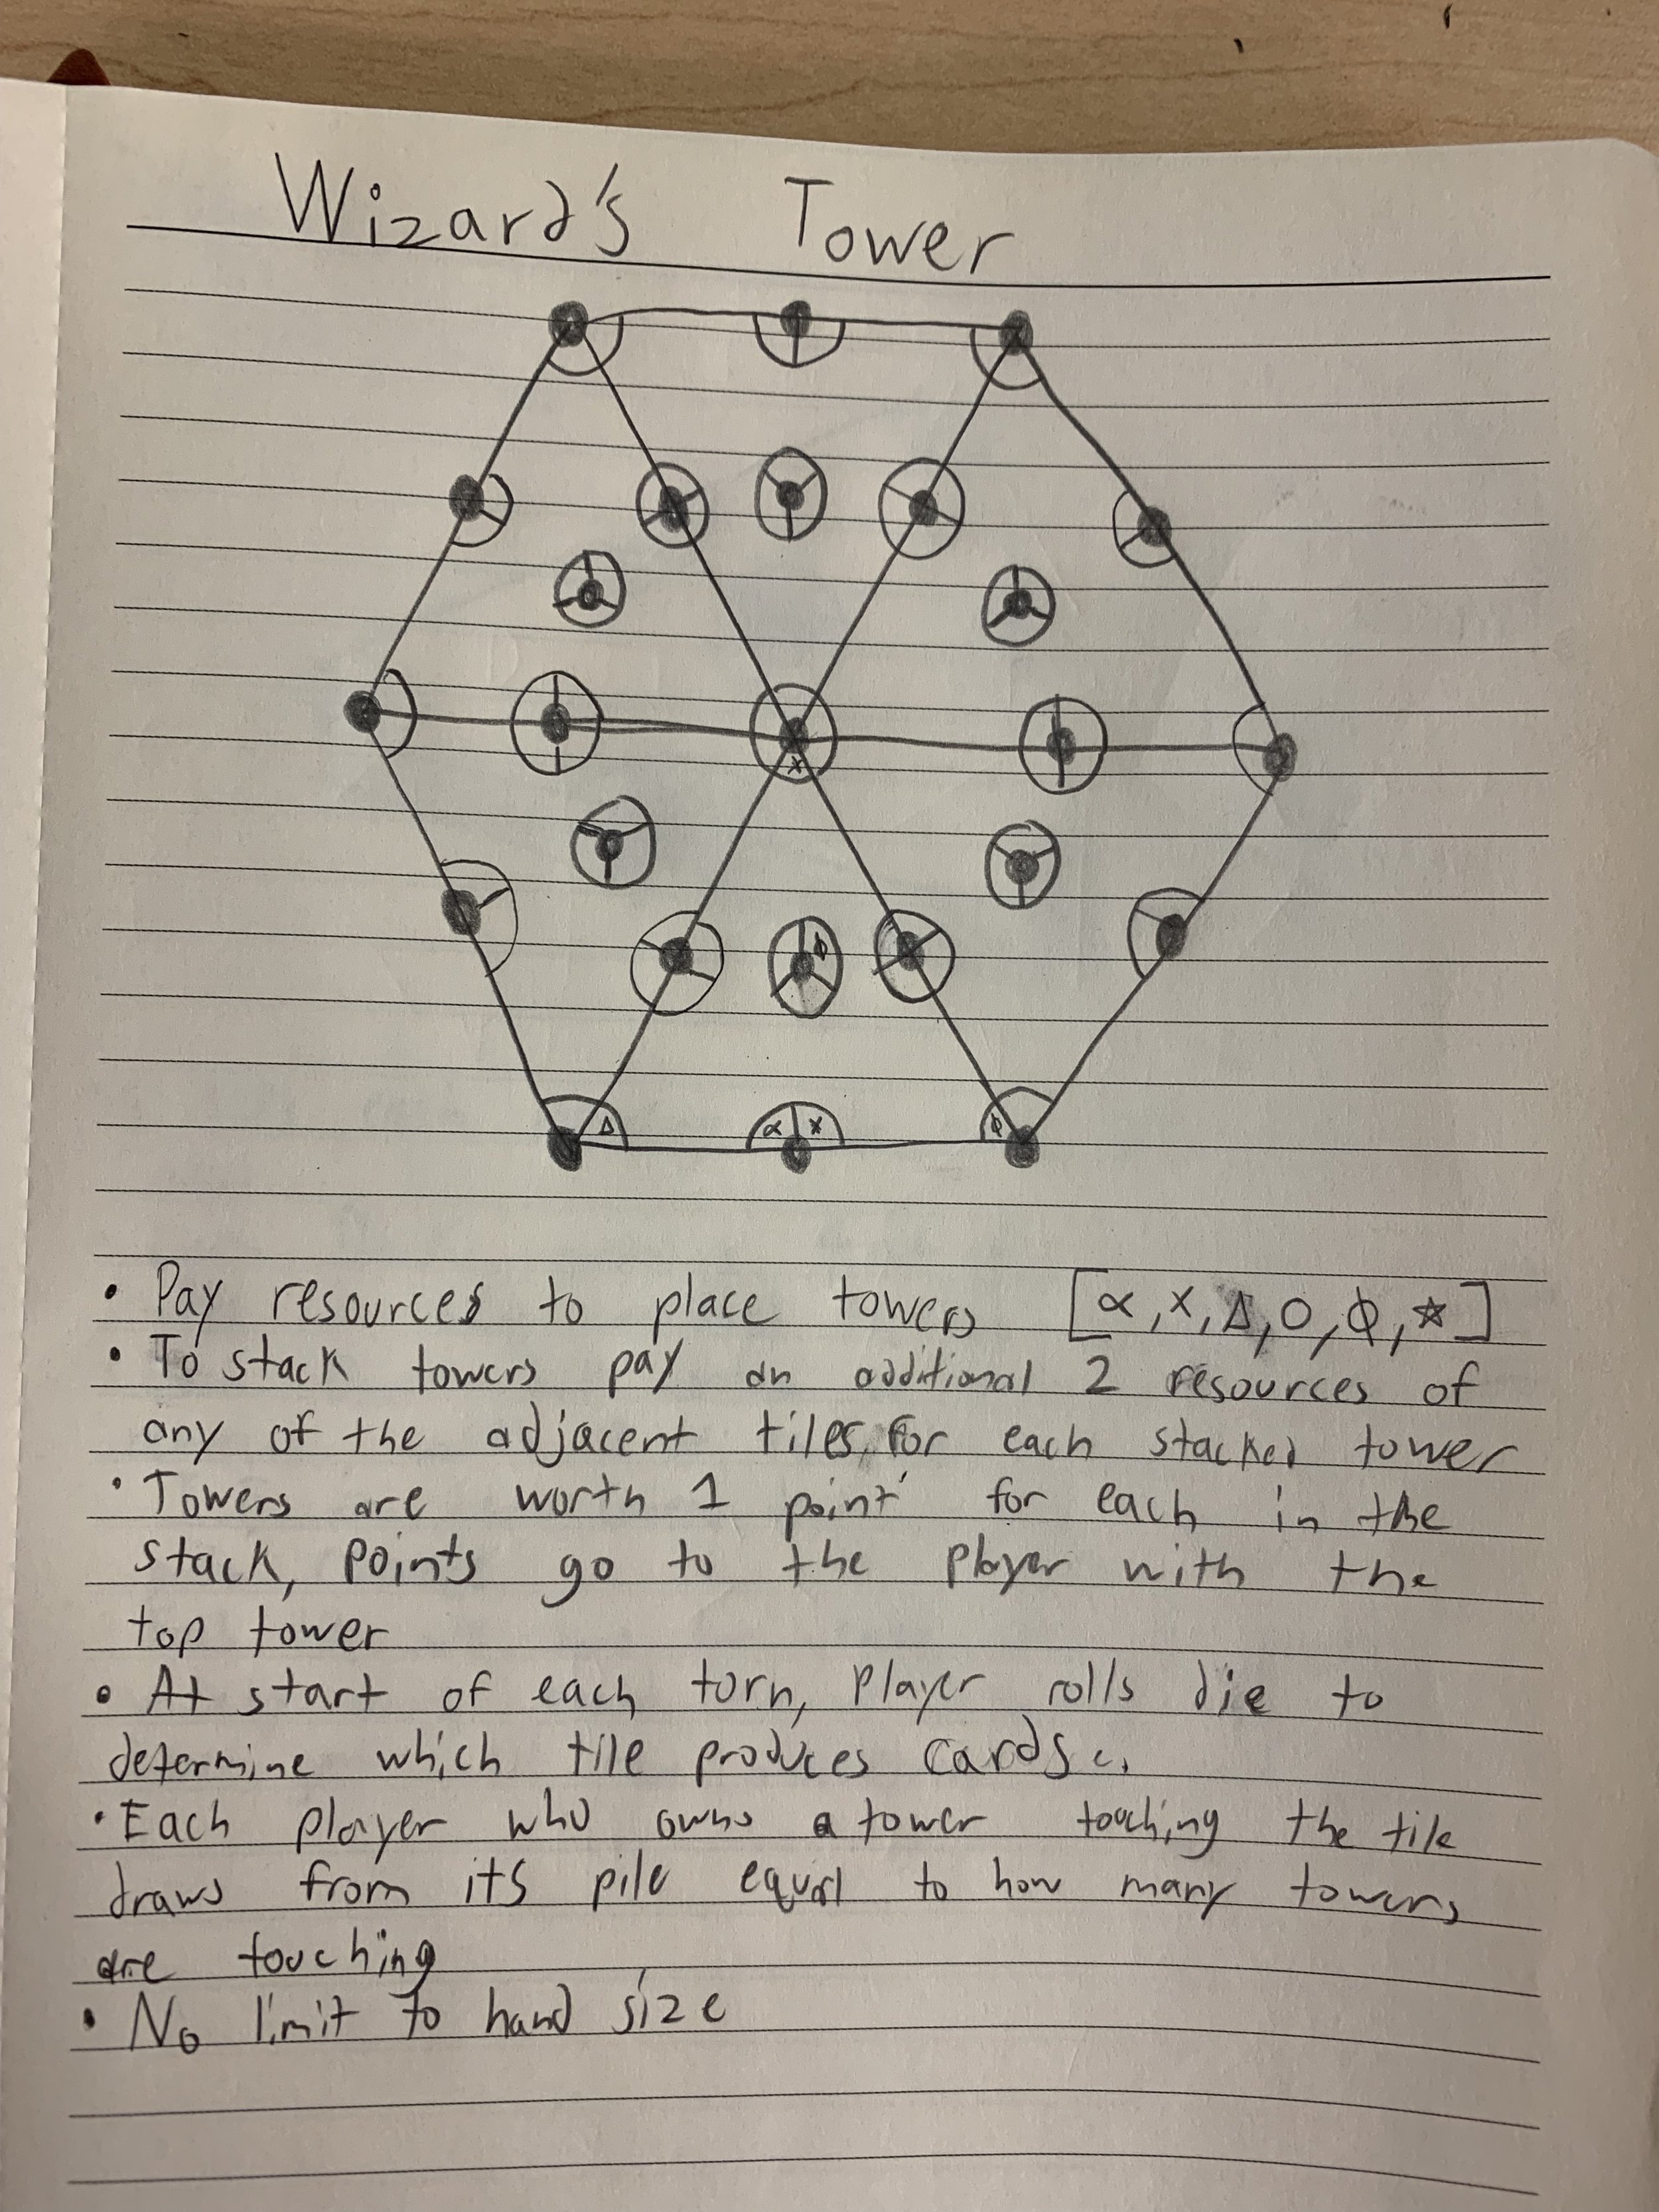 Wizard's Tower
x
ϕ
Δ α x ϕ
• Pay resources to place towers [α, x, Δ, O, ϕ, ☆]
• To stack towers pay an additional 2 resources of
any of the adjacent tiles, for each stacked tower
• Towers are worth 1 point for each in the
stack, points go to the player with the
top tower
• At start of each turn, Player rolls die to
determine which tile produces cards.
• Each player who owns a tower touching the tile
draws from its pile equal to how many towers
are touching
• No limit to hand size